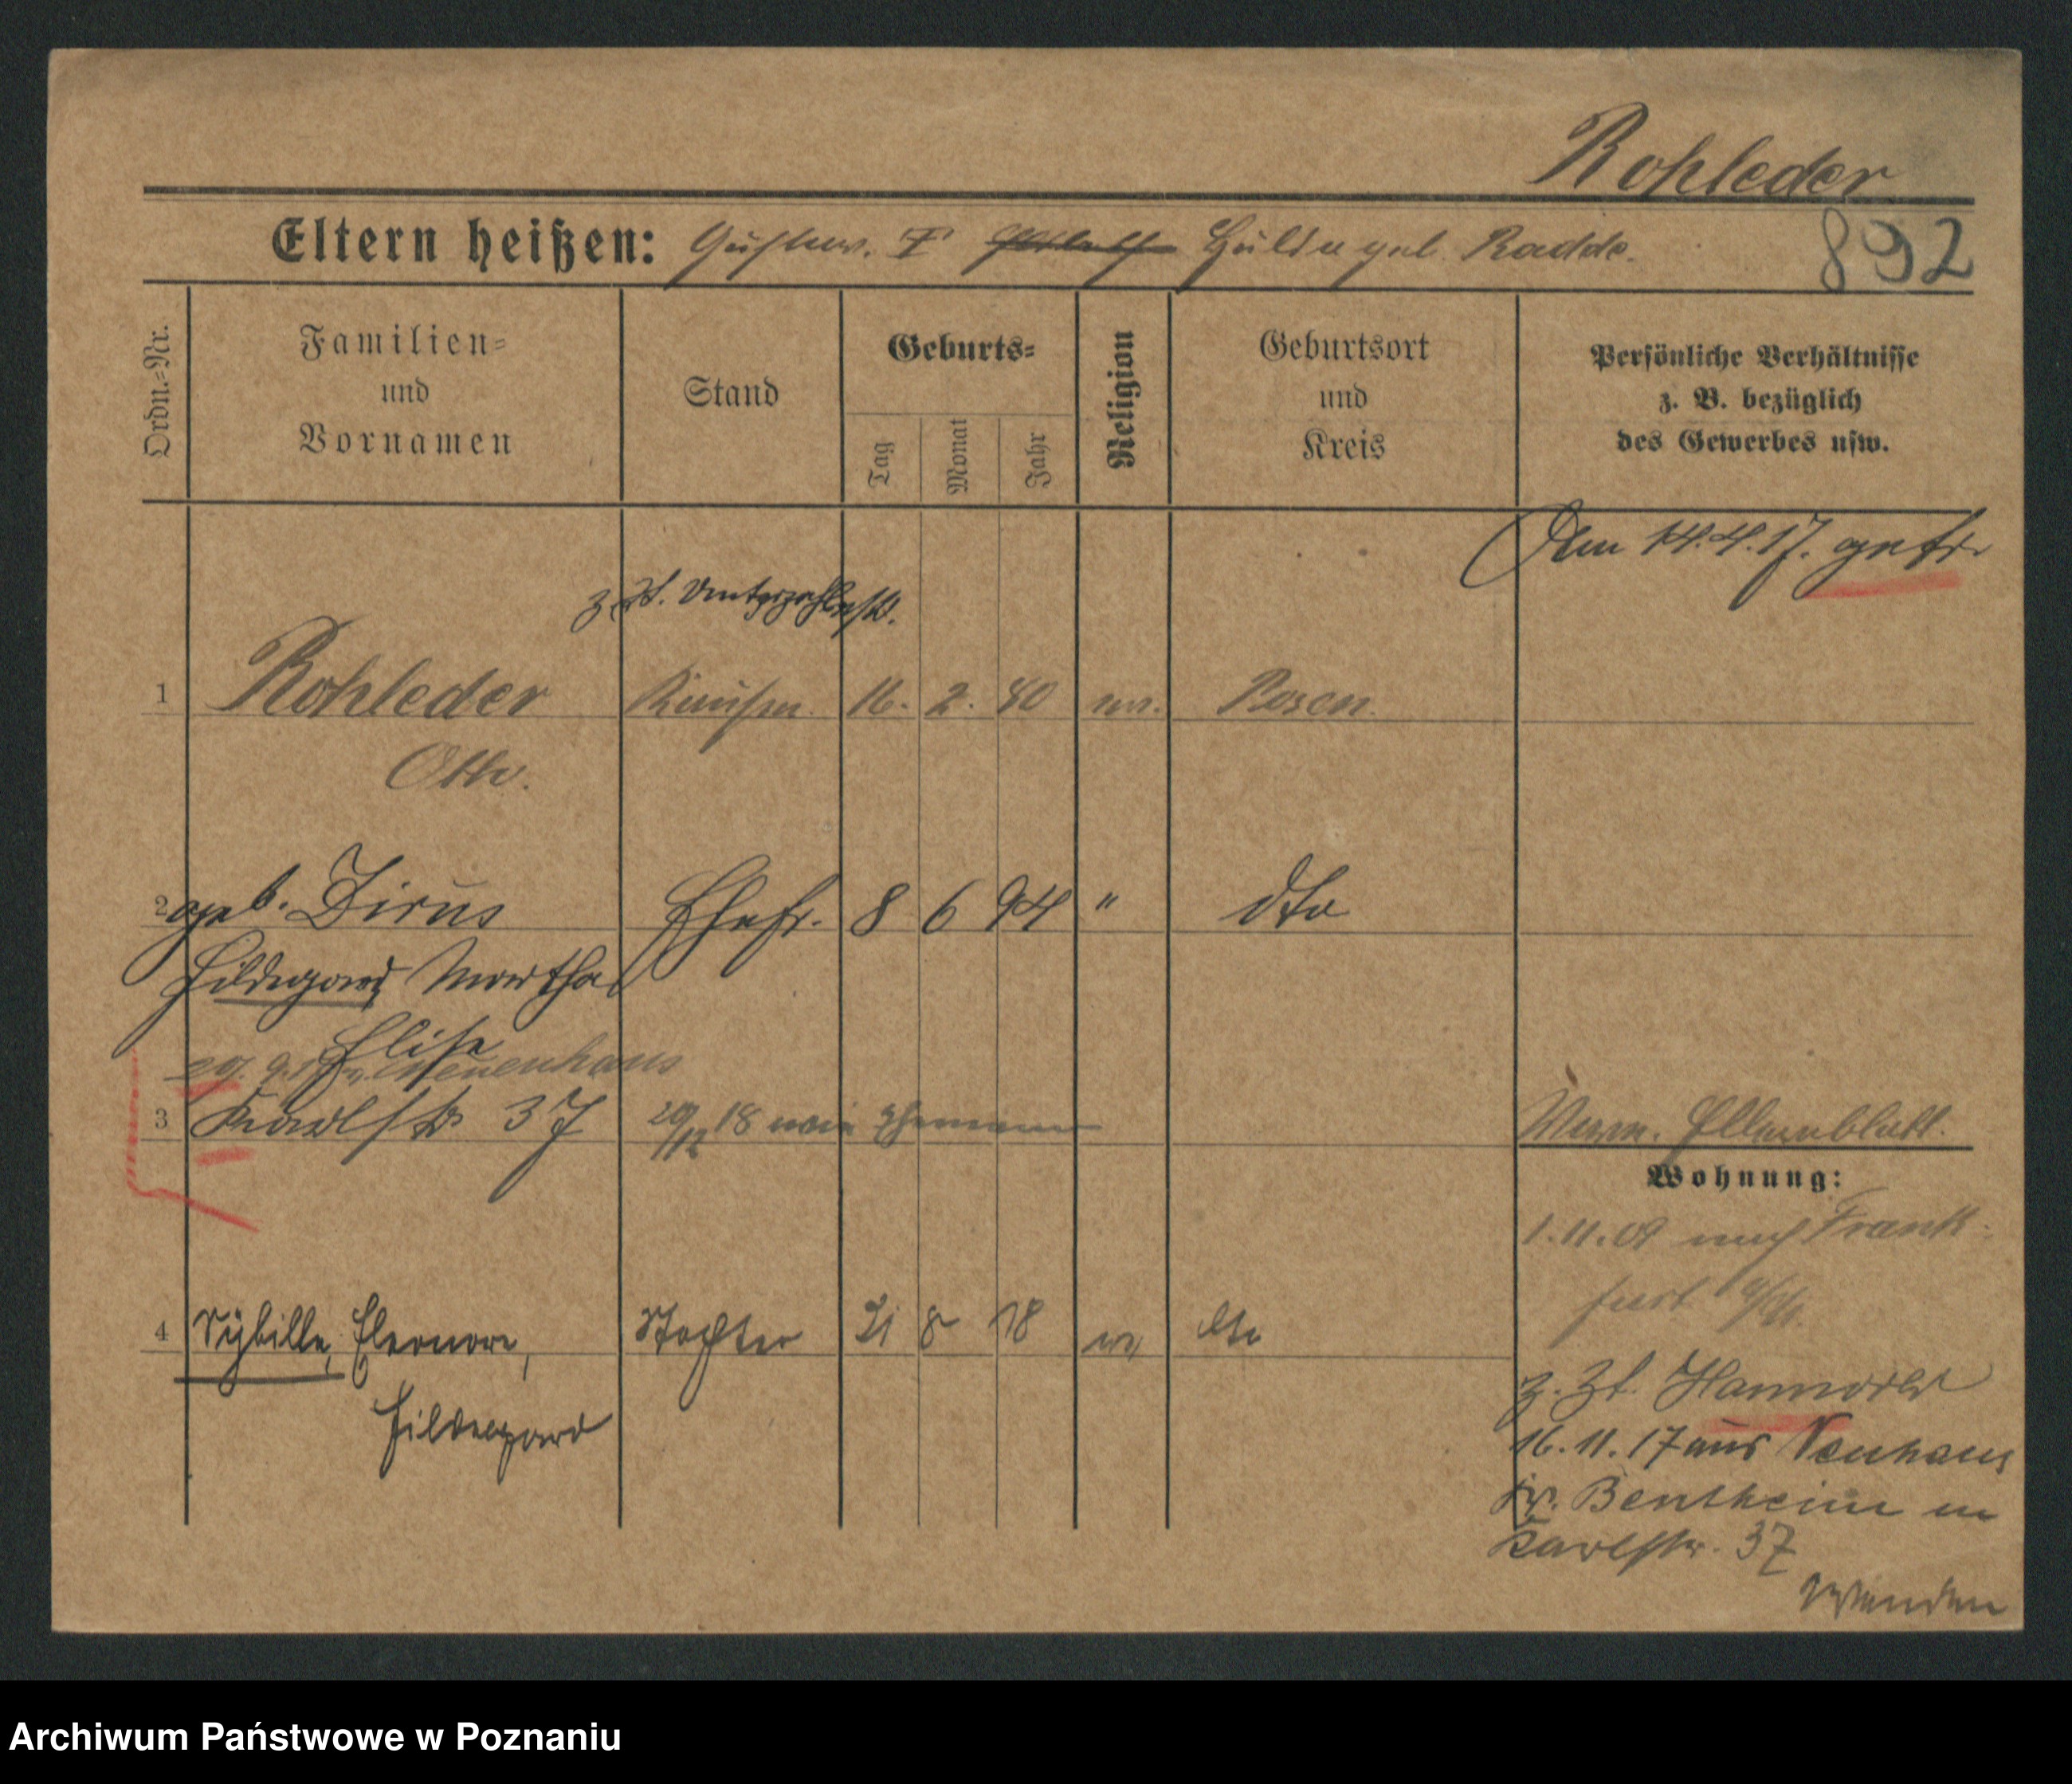 Rohleder
892
Eltern heißen: Gustav. I Hulda geb. Radde.
Ordn.-Nr.
Familien- und Vornamen
Stand
Geburts-
Tag
Monat
Jahr
Religion
Geburtsort und Kreis
Persönliche Verhältnisse z. B. bezüglich des Gewerbes usw.
Am 14.4.17. getr.
z. Zt.
1 Rohleder Kaufm. 16. 2. 80 ev. Posen.
Otto.
2 geb. Dirus Ehefr. 8 6 94 " dto
Hildegard Martha
Elise
Neuenhaus
3 Karlstr 37 18 Ehemann
Wohnung:
1.11.01 nach Frank-
furt a/M.
4 Sybille, Eleonore, Tochter 21 8 18 ev dto
Hildegard
z. Zt. Hannover
16.11.17 aus Neuhaus
Kr. Bentheim
Karlstr. 37
Wenden
Archiwum Państwowe w Poznaniu